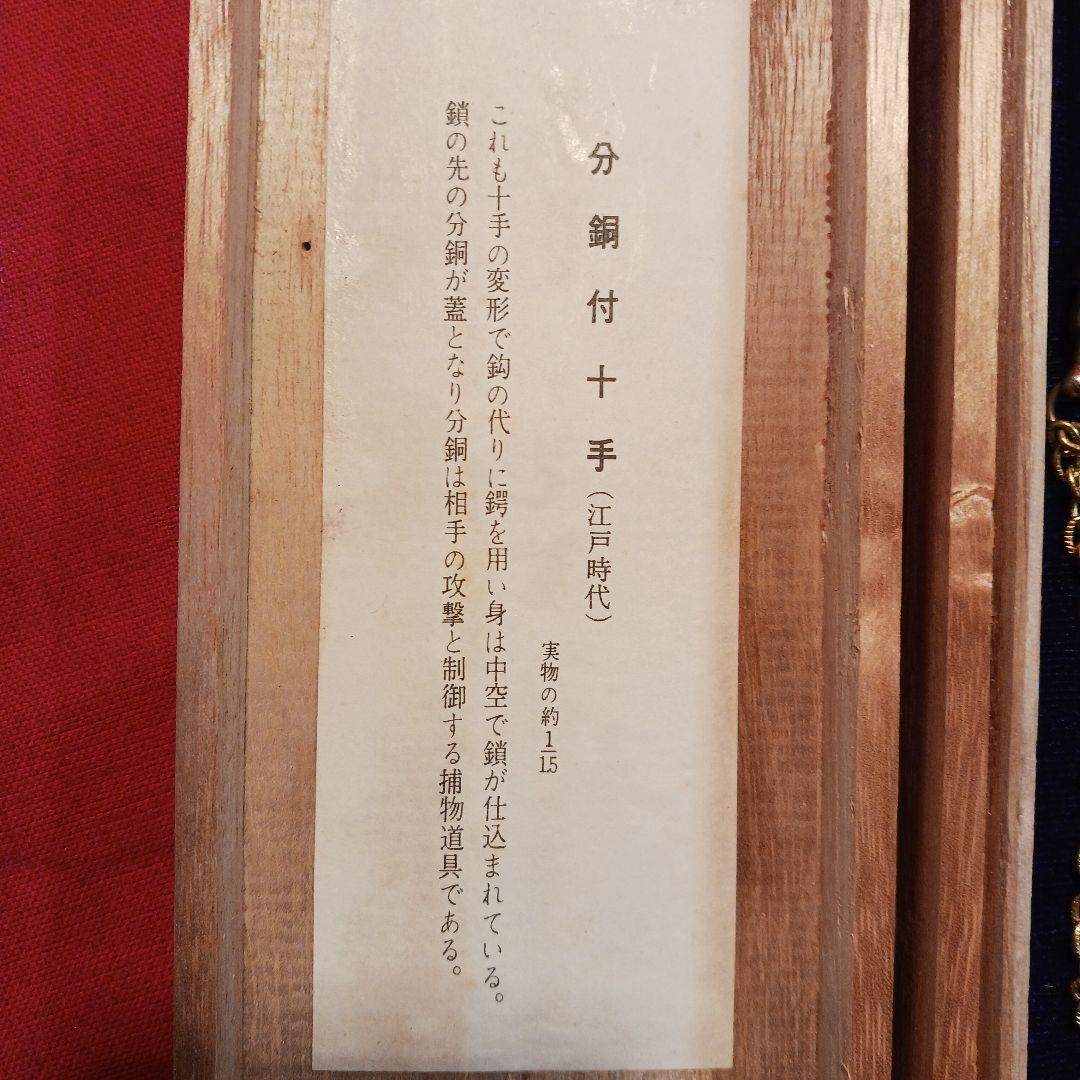 分銅付十手(江戸時代)
実物の約1/1.5
これも十手の変形で鈎の代りに鍔を用い身は中空で鎖が仕込まれている。
鎖の先の分銅が蓋となり分銅は相手の攻撃と制御する捕物道具である。